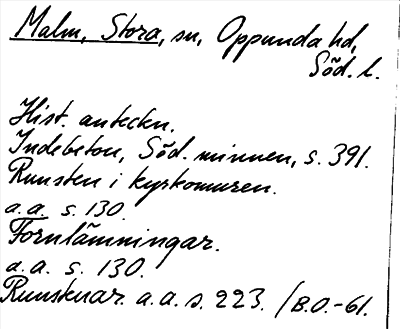 Malm, Stora, sn, Oppunda hd,
Söd. l.
Hist. anteckn.
Indebetou, Söd. minnen, s. 391.
Runsten i kyrkomuren.
a.a. s. 130.
Fornlämningar.
a.a. s. 130.
Runstenar. a.a. s. 223. /B.O.-61.